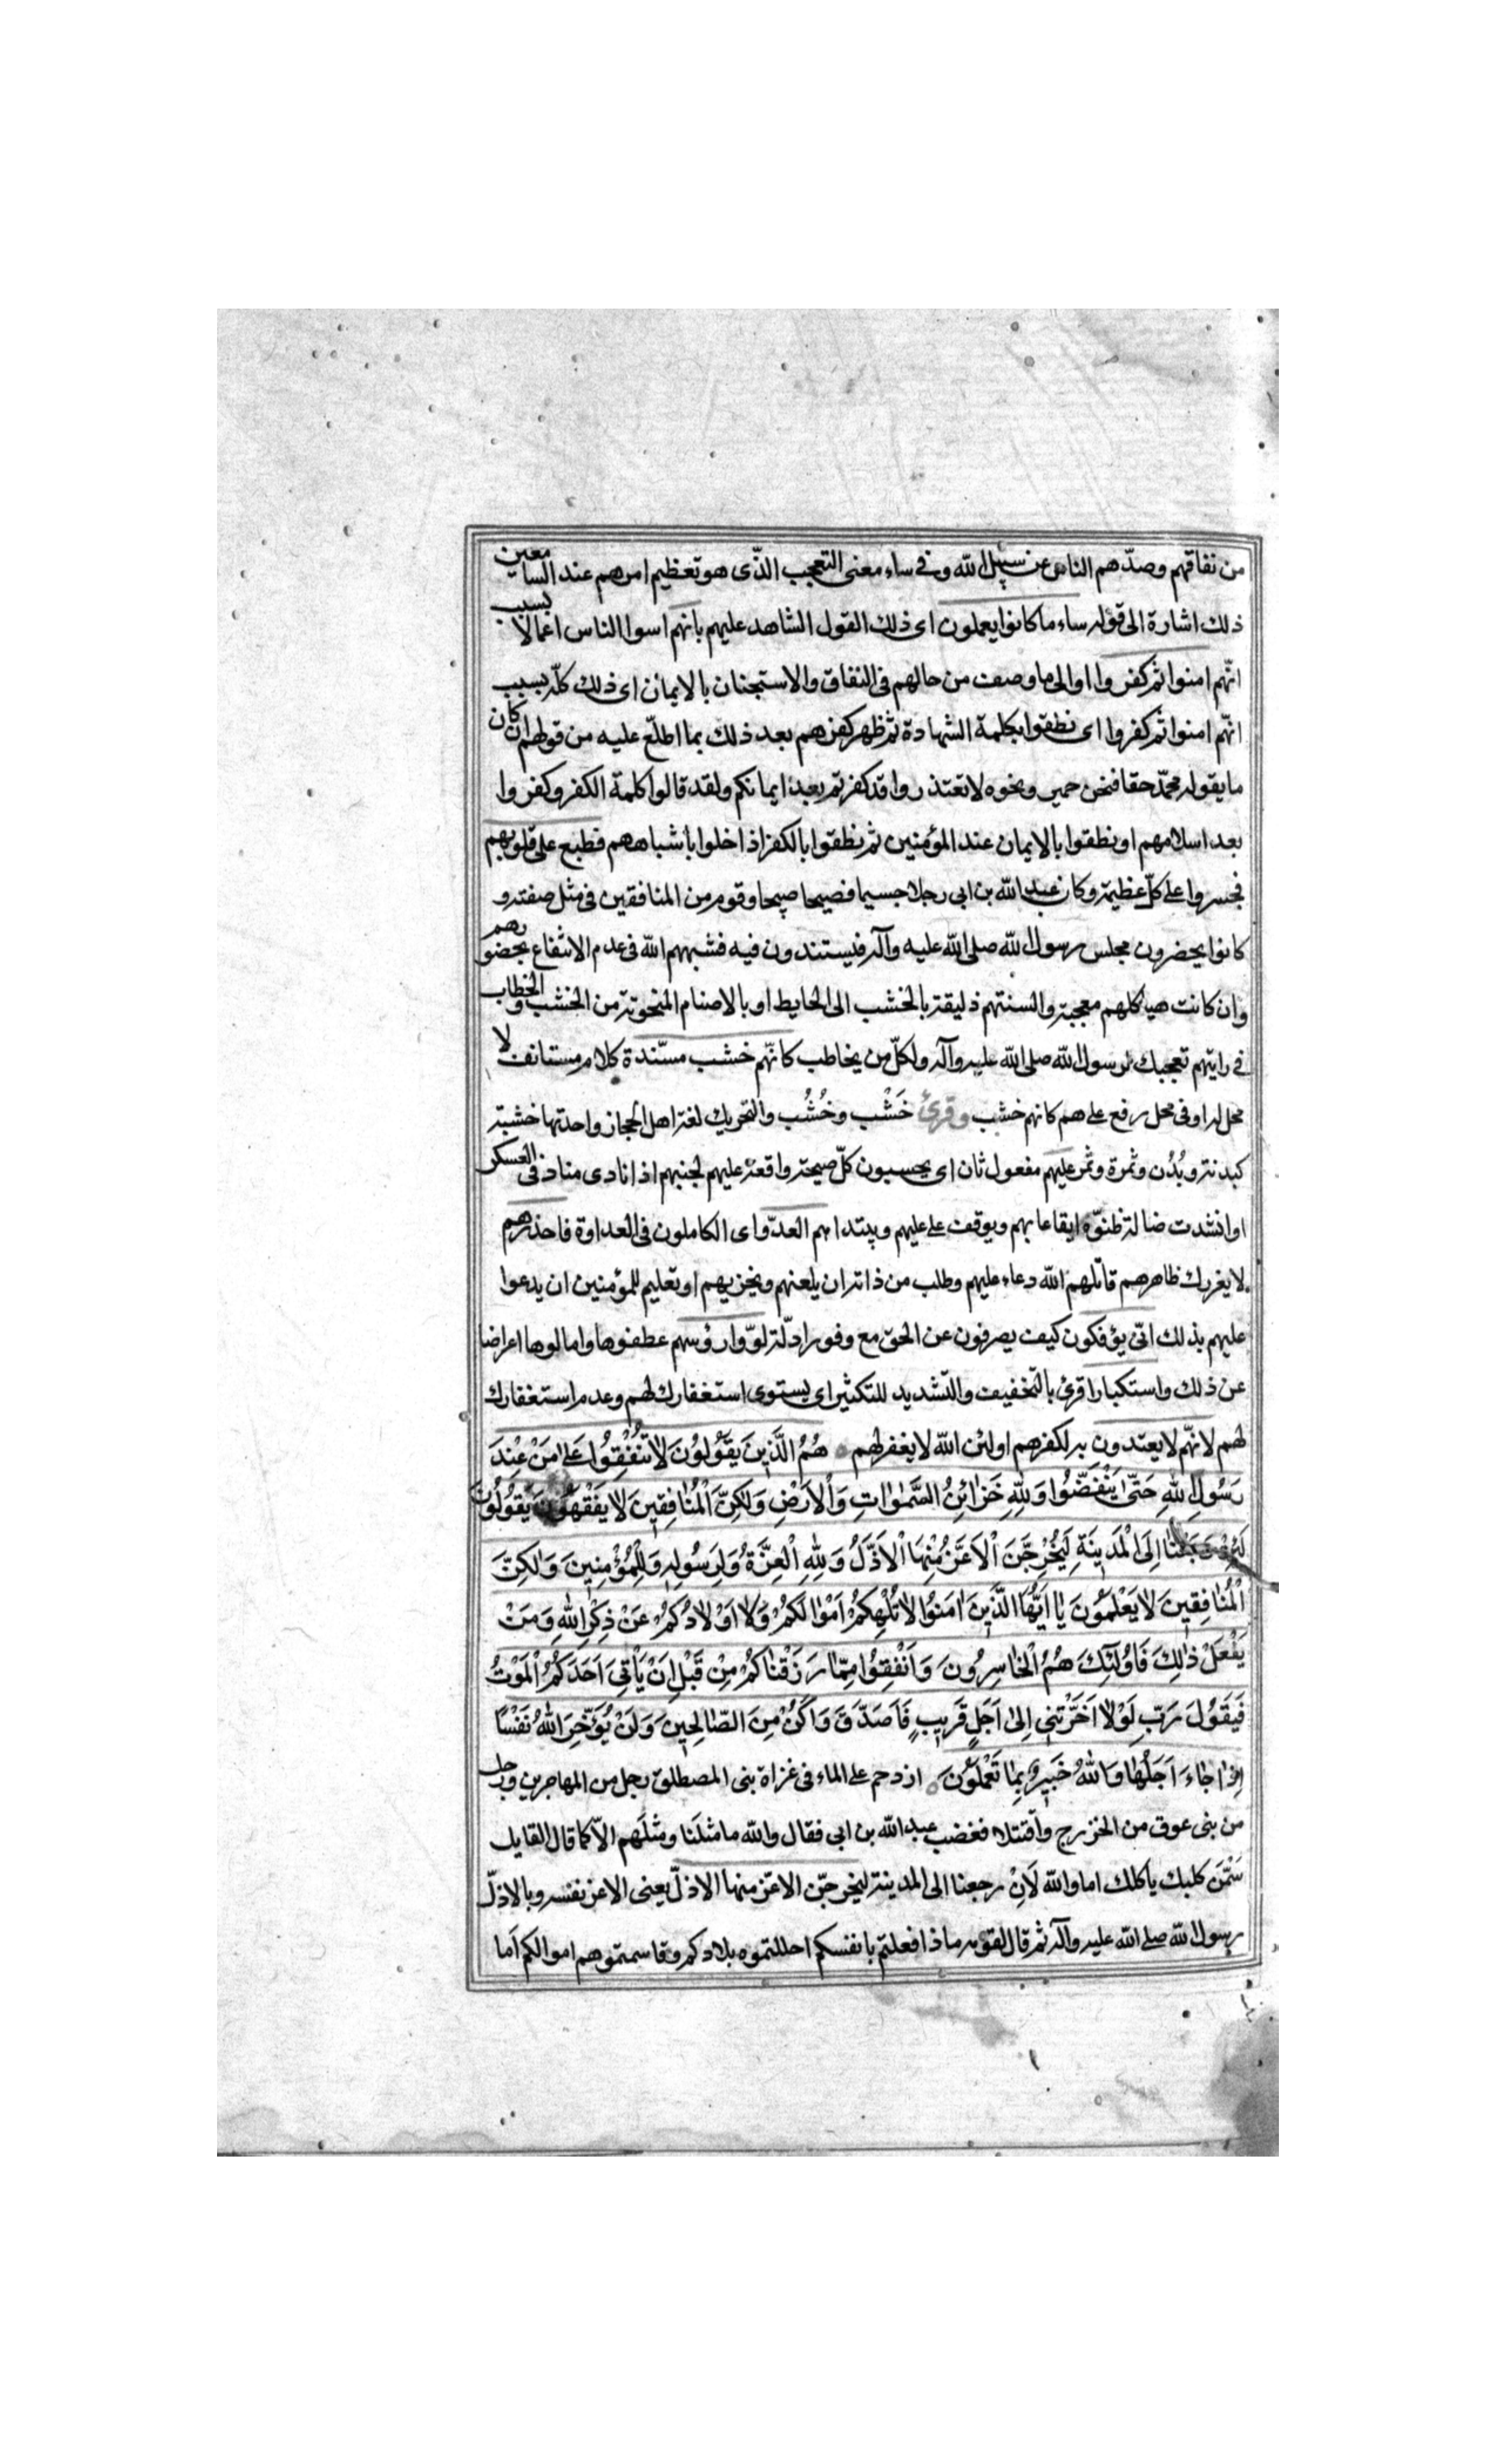 من نفاقهم وصدّهم الناس عن سبيل الله وفي ساء معنى التعجب الذّى هو تعظيم امرهم عند السامعين
ذلك اشارة الى قوله ساء ما كانوا يعملون اى ذلك القول الشاهد عليهم بانهم اسوا الناس اعمالا بسبب
انّهم امنوا ثم كفروا او الى ما وصف من حالهم فى النفاق والاستجنان بالايمان اى ذلك كلّه بسبب
انّهم امنوا ثم كفروا اى نطقوا بكلمة الشهادة ثم ظهر كفرهم بعد ذلك بما اطلّع عليه من قولهم ان كان
ما يقوله محمّد حقا فنحن حمير ونحوه لا تعتذروا قد كفرتم بعد ايمانكم ولقد قالوا كلمة الكفر وكفروا
بعد اسلامهم او نطقوا بالايمان عند المؤمنين ثم نطقوا بالكفر اذا خلوا باشباههم فطبع على قلوبهم
فجسروا على كلّ عظيمة وكان عبد الله بن ابى رجلا جسيما فصيحا صبيحا وقوم من المنافقين فى مثل صفته و
كانوا يحضرون مجلس رسول الله صلى الله عليه وآله فيستندون فيه فشبههم الله فى عدم الانتفاع بحضورهم
وان كانت هياكلهم معجبة والسنتهم ذليقة بالخشب الى الحايط او بالاصنام المنحوتة من الخشب والخطاب
في رايتهم تعجبك لرسول الله صلى الله عليه وآله ولكلّ من يخاطب كانّهم خشب مسنّدة كلام مستانف لا
محل له او فى محل رفع على هم كانهم خشب وقرئ خَشْب وخُشُب والتحريك لغة اهل الحجاز واحدتها خشبة
كبدنة وبُدُن وثمرة وثمر عليهم مفعول ثان اى يحسبون كلّ صيحة واقعة عليهم لجبنهم اذا نادى مناد فى العسكر
او انشدت ضالة ظنوّه ايقاعا بهم ويوقف على عليهم ويبتدا هم العدّو اى الكاملون فى العداوة فاحذرهم
لا يغررك ظاهرهم قاتلهم الله دعاء عليهم وطلب من ذاته ان يلعنهم ويخزيهم او تعليم للمؤمنين ان يدعوا
عليهم بذلك انّى يؤفكون كيف يصرفون عن الحق مع وفور ادلّته لوّوا رؤسهم عطفوها وامالوها اعراضا
عن ذلك واستكبارا قرئ بالتخفيف والتشديد للتكثير اى يستوى استغفارك لهم وعدم استغفارك
لهم لانّهم لا يعتدون به لكفرهم او لئن الله لا يغفر لهم هُمُ الَّذِينَ يَقُولُونَ لَا تُنْفِقُوا عَلَى مَنْ عِنْدَ
رَسُولِ اللهِ حَتّى يَنْفَضُّوا وَلِلّهِ خَزَائِنُ السَّمٰوَاتِ وَالْاَرْضِ وَلٰكِنَّ الْمُنَافِقِينَ لَا يَفْقَهُونَ يَقُولُونَ
لَئِنْ رَجَعْنَا اِلَى الْمَدِينَةِ لَيُخْرِجَنَّ الْاَعَزُّ مِنْهَا الْاَذَلَّ وَلِلّهِ الْعِزَّةُ وَلِرَسُولِهِ وَلِلْمُؤْمِنِينَ وَلٰكِنَّ
الْمُنَافِقِينَ لَا يَعْلَمُونَ يَا اَيُّهَا الَّذِينَ اٰمَنُوا لَا تُلْهِكُمْ اَمْوَالُكُمْ وَلَا اَوْلَادُكُمْ عَنْ ذِكْرِ اللهِ وَمَنْ
يَفْعَلْ ذٰلِكَ فَاُولٰئِكَ هُمُ الْخَاسِرُونَ وَاَنْفِقُوا مِمَّا رَزَقْنَاكُمْ مِنْ قَبْلِ اَنْ يَاْتِىَ اَحَدَكُمُ الْمَوْتُ
فَيَقُولَ رَبِّ لَوْلَا اَخَّرْتَنِى اِلَى اَجَلٍ قَرِيبٍ فَاَصَدَّقَ وَاَكُنْ مِنَ الصَّالِحِينَ وَلَنْ يُؤَخِّرَ اللهُ نَفْسًا
اِذَا جَاءَ اَجَلُهَا وَاللهُ خَبِيرٌ بِمَا تَعْمَلُونَ ازدحم على الماء فى غزاة بنى المصطلق رجل من المهاجرين ورجل
من بنى عوف من الخزرج واقتتلا فغضب عبد الله بن ابى فقال والله ما مثلنا ومثلهم الّا كما قال القايل
سَمِّنَ كلبك ياكلك اما والله لَاِنْ رجعنا الى المدينة ليخرجنّ الاعزّ منها الاذلّ يعنى الاعز نفسه وبالاذلّ
رسول الله صلى الله عليه وآله ثم قال لقومه ماذا فعلتم بانفسكم احللتموه بلادكم وقاسمتموهم اموالكم اَما